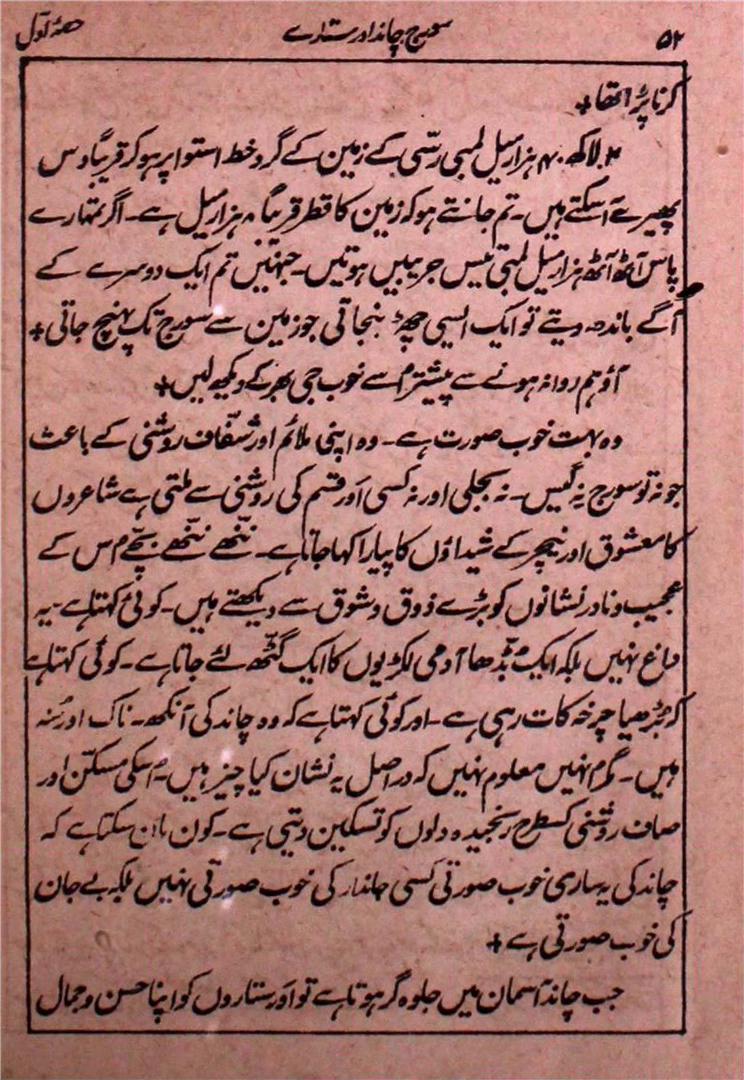 ۵۲ سورج چاند اور ستارے حصۂ اوّل
کرنا پڑا تھا+
۲ لاکھ ۴۰ ہزار میل لمبی رسّی کے زمین کے گرد خط استوا پر ہو کر قریباً دس
پھیرے آسکتے ہیں۔ تم جانتے ہو کہ زمین کا قطر قریباً ۸ ہزار میل ہے۔ اگر تمہارے
پاس آٹھ آٹھ ہزار میل لمبی تیس جریبیں ہوتیں۔ جنہیں تم ایک دوسرے کے
آگے باندھ دیتے تو ایک ایسی چھڑ بنجاتی جو زمین سے سورج تک پہنچ جاتی+
آؤ ہم روانہ ہونے سے پیشتر اُسے خوب جی بھر کے دیکھ لیں+
وہ بہت خوب صورت ہے۔ وہ اپنی ملائم اور شفّاف روشنی کے باعث
جو نہ تو سورج نہ گیس۔ نہ بجلی اور نہ کسی اَور قسم کی روشنی سے ملتی ہے شاعروں
کا معشوق اور نیچر کے شیداؤں کا پیارا کہا جاتا ہے۔ ننّھے ننّھے بچّے اُس کے
عجیب و نادر نشانوں کو بڑے ذوق و شوق سے دیکھتے ہیں۔ کوئی کہتا ہے۔ یہ
داغ نہیں بلکہ ایک بُڈّھا آدمی لکڑیوں کا ایک گٹّھ لئے جاتا ہے۔ کوئی کہتا ہے
کہ بُڑھیا چرخہ کات رہی ہے۔ اور کوئی کہتا ہے کہ وہ چاند کی آنکھ۔ ناک اور مُنہ
ہیں۔ مگر ہم نہیں معلوم نہیں کہ دراصل یہ نشان کیا چیز ہیں۔ اُسکی مسکّن اور
صاف روشنی کسطرح رنجیدہ دلوں کو تسکین دیتی ہے۔ کون مان سکتا ہے کہ
چاند کی یہ ساری خوب صورتی کسی جاندار کی خوب صورتی نہیں بلکہ بے جان
کی خوب صورتی ہے+
جب چاند آسمان میں جلوہ گر ہوتا ہے تو اَور ستاروں کو اپنا حسن و جمال